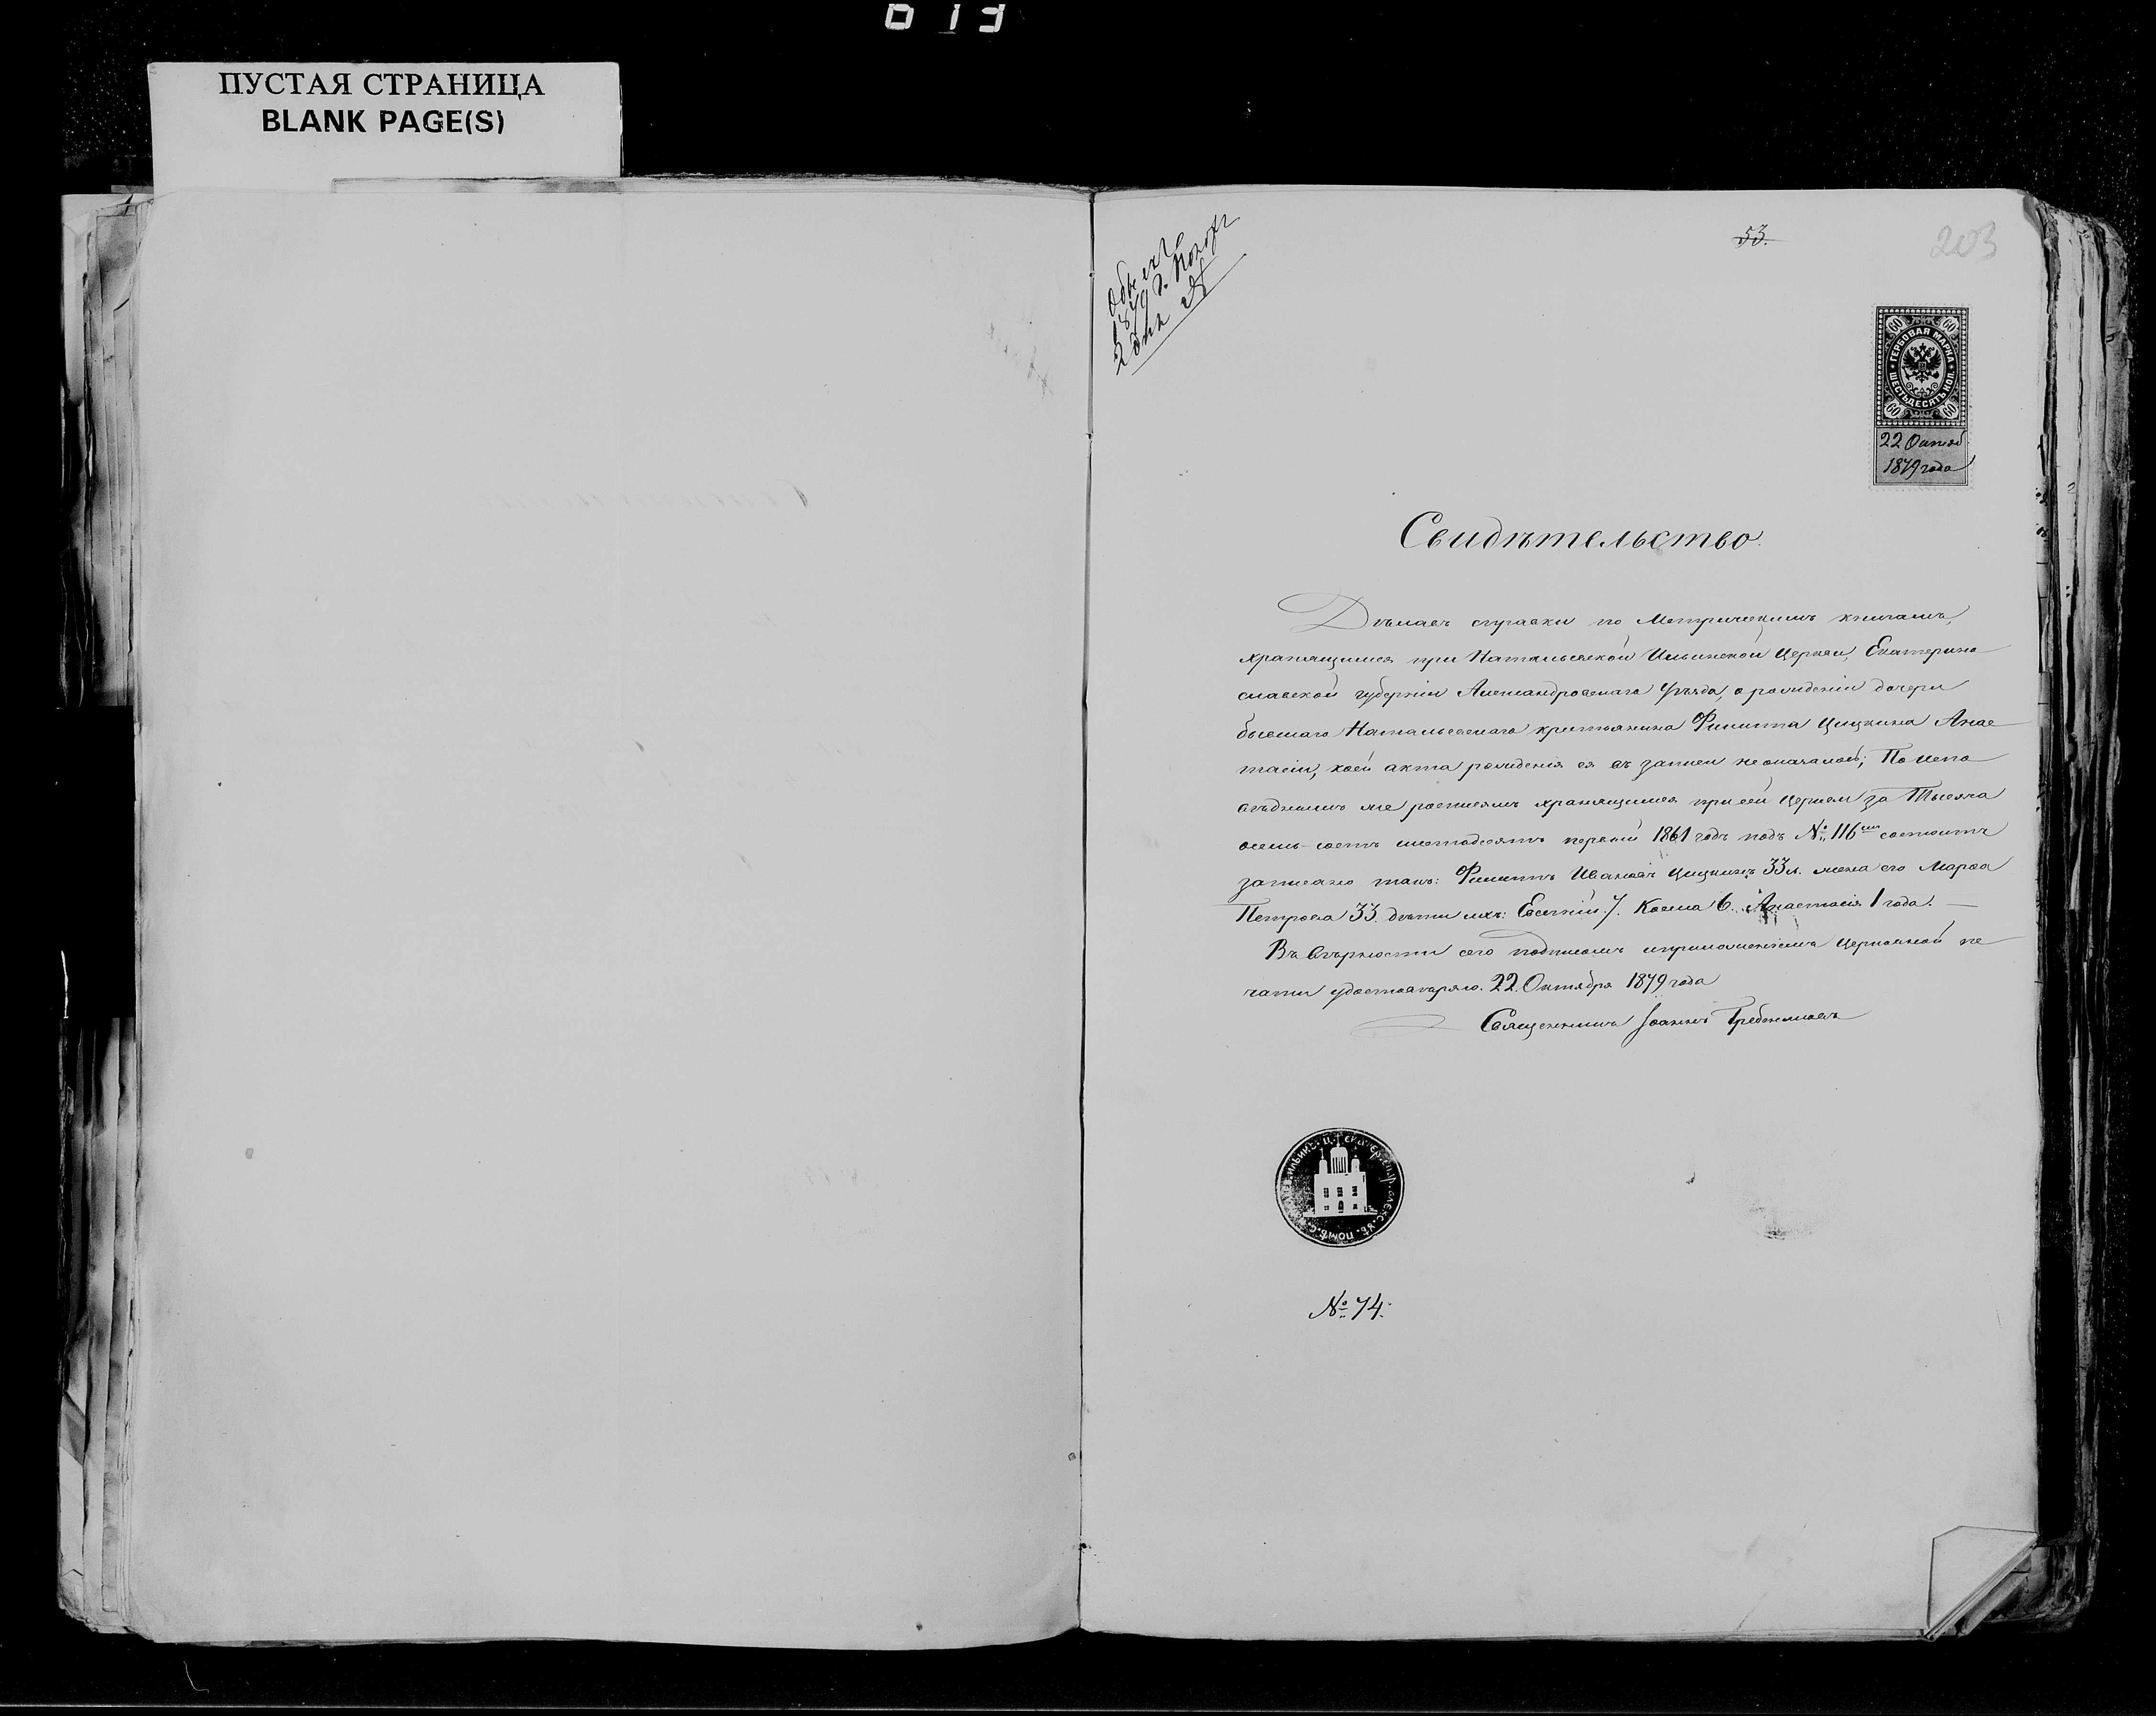 613
ПУСТАЯ СТРАНИЦА
BLANK PAGE(S)
1879 г. Нояб
2 дня
53.
203
60 60
ГЕРБОВАЯ МАРКА
ШЕСТЬДЕСЯТЪ КОП.
60 60
22 Октяб
1879 года
Свидѣтельство.
Дѣлавъ справки по Метрическимъ книгамъ,
хранящимся при Натальевской Ильинской Церкви, Екатерино
славской губерніи Александровскаго Уѣзда, о рожденіи дочери
бывшаго Натальевскаго крестьянина Филиппа Цицкина Анас
тасіи, коей акта рожденія ея въ записи не оказалось; По испо
вѣднымъ же росписямъ хранящимся при сей Церкви за Тысяча
осемь-сотъ шестьдесятъ первый 1861 годъ подъ №. 116 состоитъ
записано такъ: Филиппъ Ивановъ Цицкинъ 33 л. жена его Марфа
Петрова 33. дѣти ихъ: Евсѣній 7. Косма 6. Анастасія 1 года. —
Въ вѣрности сего подписомъ и приложеніемъ Церковной пе
чати удостовѣряю. 22. Октября 1879 года
Священникъ Іоаннъ Гребенниковъ
ИЛЬИНС. Ц. ЕКАТЕР. ЕПАР. АЛЕКС. УѢ. ПОМѢ. С.
№. 74.